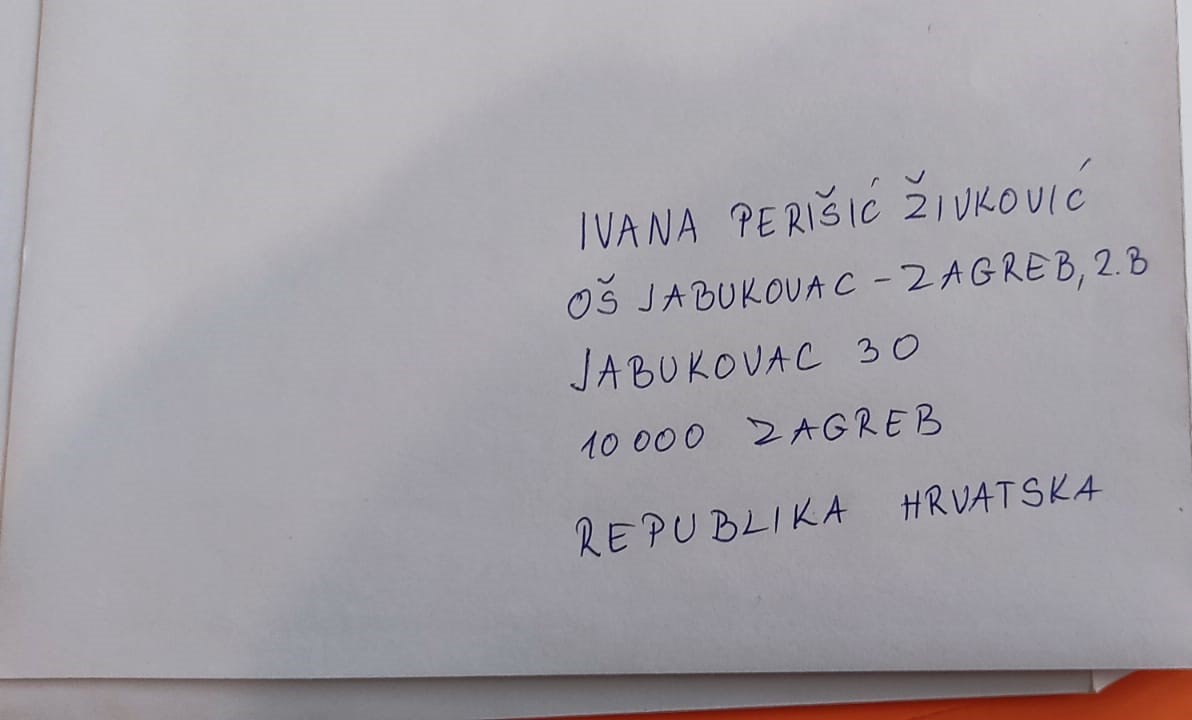 IVANA PERIŠIĆ ŽIVKOVIĆ
OŠ JABUKOVAC - ZAGREB, 2.B
JABUKOVAC 30
10 000 ZAGREB
REPUBLIKA HRVATSKA